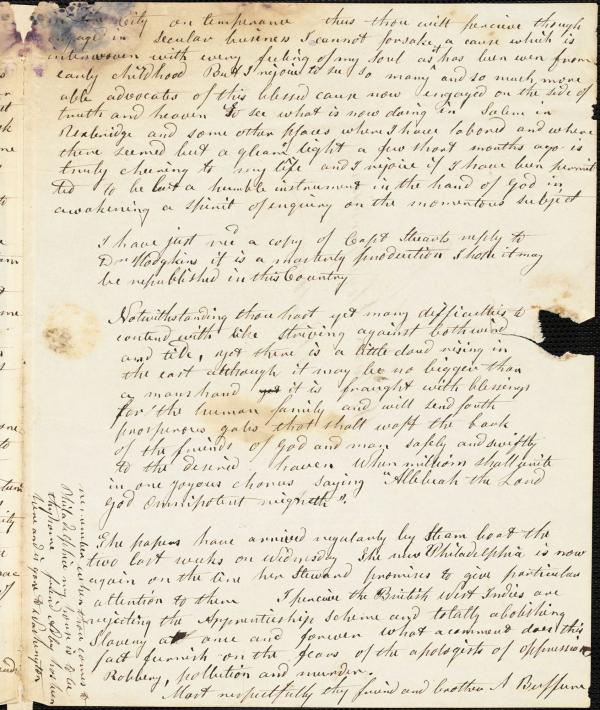 city on temperance thus thou will perceive though
engaged in secular business I cannot forsake a cause which is
interwoven with every feeling of my Soul as it has been even from
early childhood But I rejoice to see so many and so much more
able advocates of this blessed cause now engaged on the side of
truth and heaven To see what is now doing in Salem in
Uxbridge and some other places where I have labored and where
there seemed but a gleam of light a few short months ago is
truly cheering to my life and I rejoice if I have been permit
ted to be but a humble instrument in the hand of God in
awakening a spirit of enquiry on the momentous subject
I have just rec'd a copy of Capt Stuarts reply to
Dr Hodgkins it is a masterly production I hope it may
be republished in this Country
Notwithstanding thou hast yet many difficulties to
contend with like striving against both wind
and tide, yet there is a little cloud rising in
the east although it may be no bigger than
a mans hand yet it is fraught with blessings
for the human family and will send forth
prosperous gales that shall waft the bark
of the friends of God and man safely and swiftly
to the desired haven when millions shall unite
in one joyous chorus saying "Alleluah the Lord
God Omnipotent reigneth".
The papers have arrived regularly by Steam boat the
two last weeks on Wednesday The new Philadelphia is now
again on the line her Steward promises to give particular
attention to them I perceive the British West Indies are
rejecting the Apprenticeship Scheme and totally abolishing
Slavery at once and forever what a comment does this
fact furnish on the fears of the apologists of oppression
Robbery, pollution and murder.
Most respectfully thy friend and brother A Buffum
remember when thou comes to
Philadelphia my house is to be
thy home friend Abby has been
here and is gone to Washington